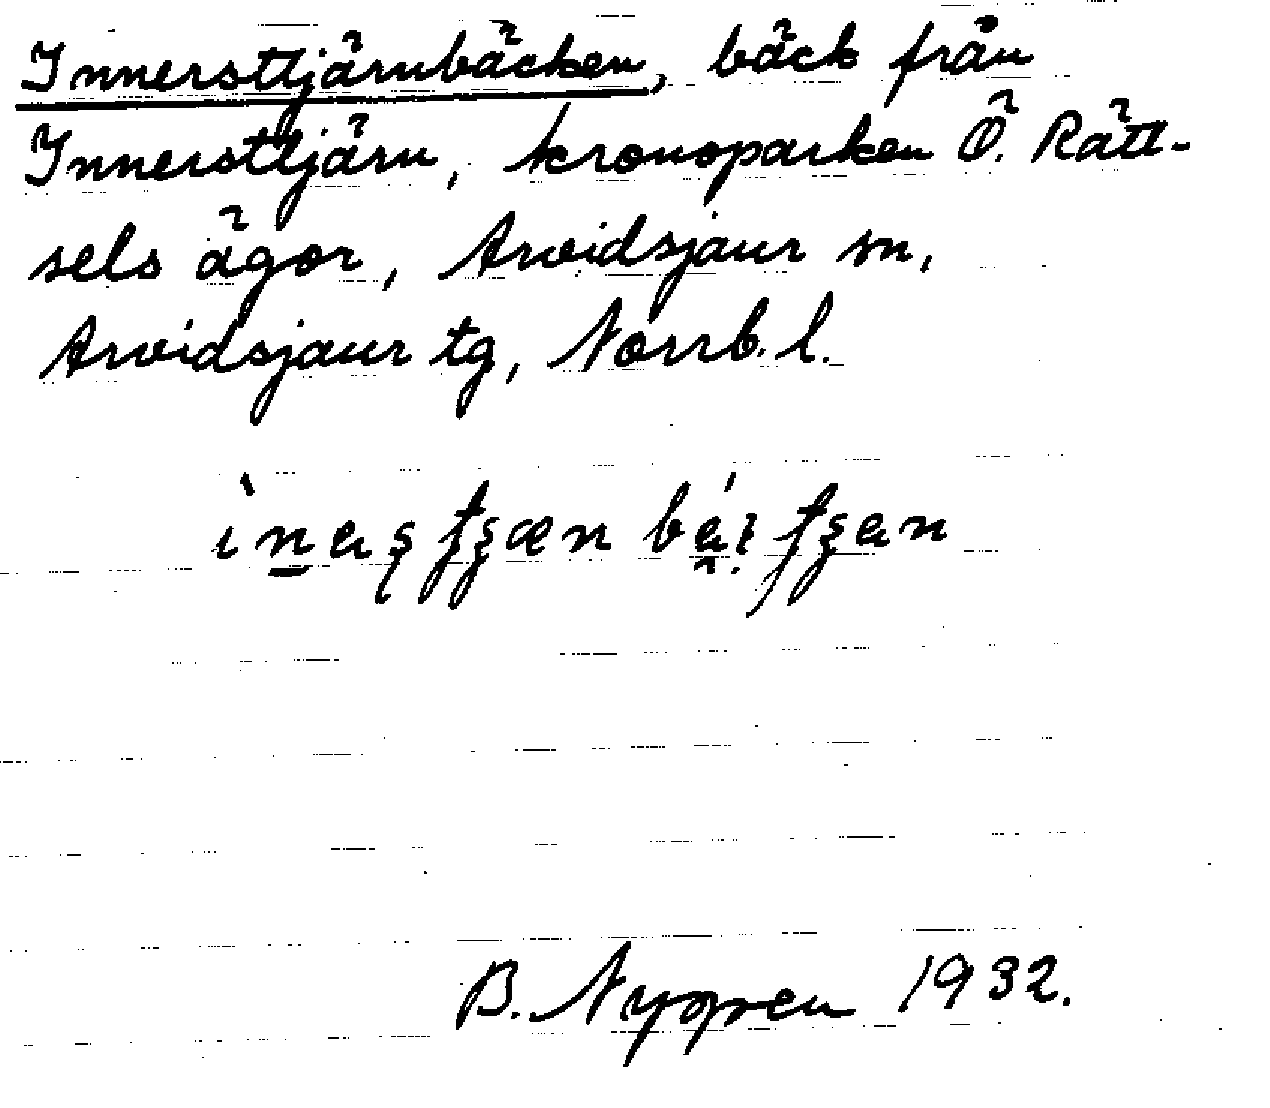 Innersttjärnbäcken, bäck från
Innersttjärn, kronoparken Ö. Rätt-
sels ägor, Arvidsjaur sn,
Arvidsjaur tg, Norrb. l.
B. Nygren 1932.